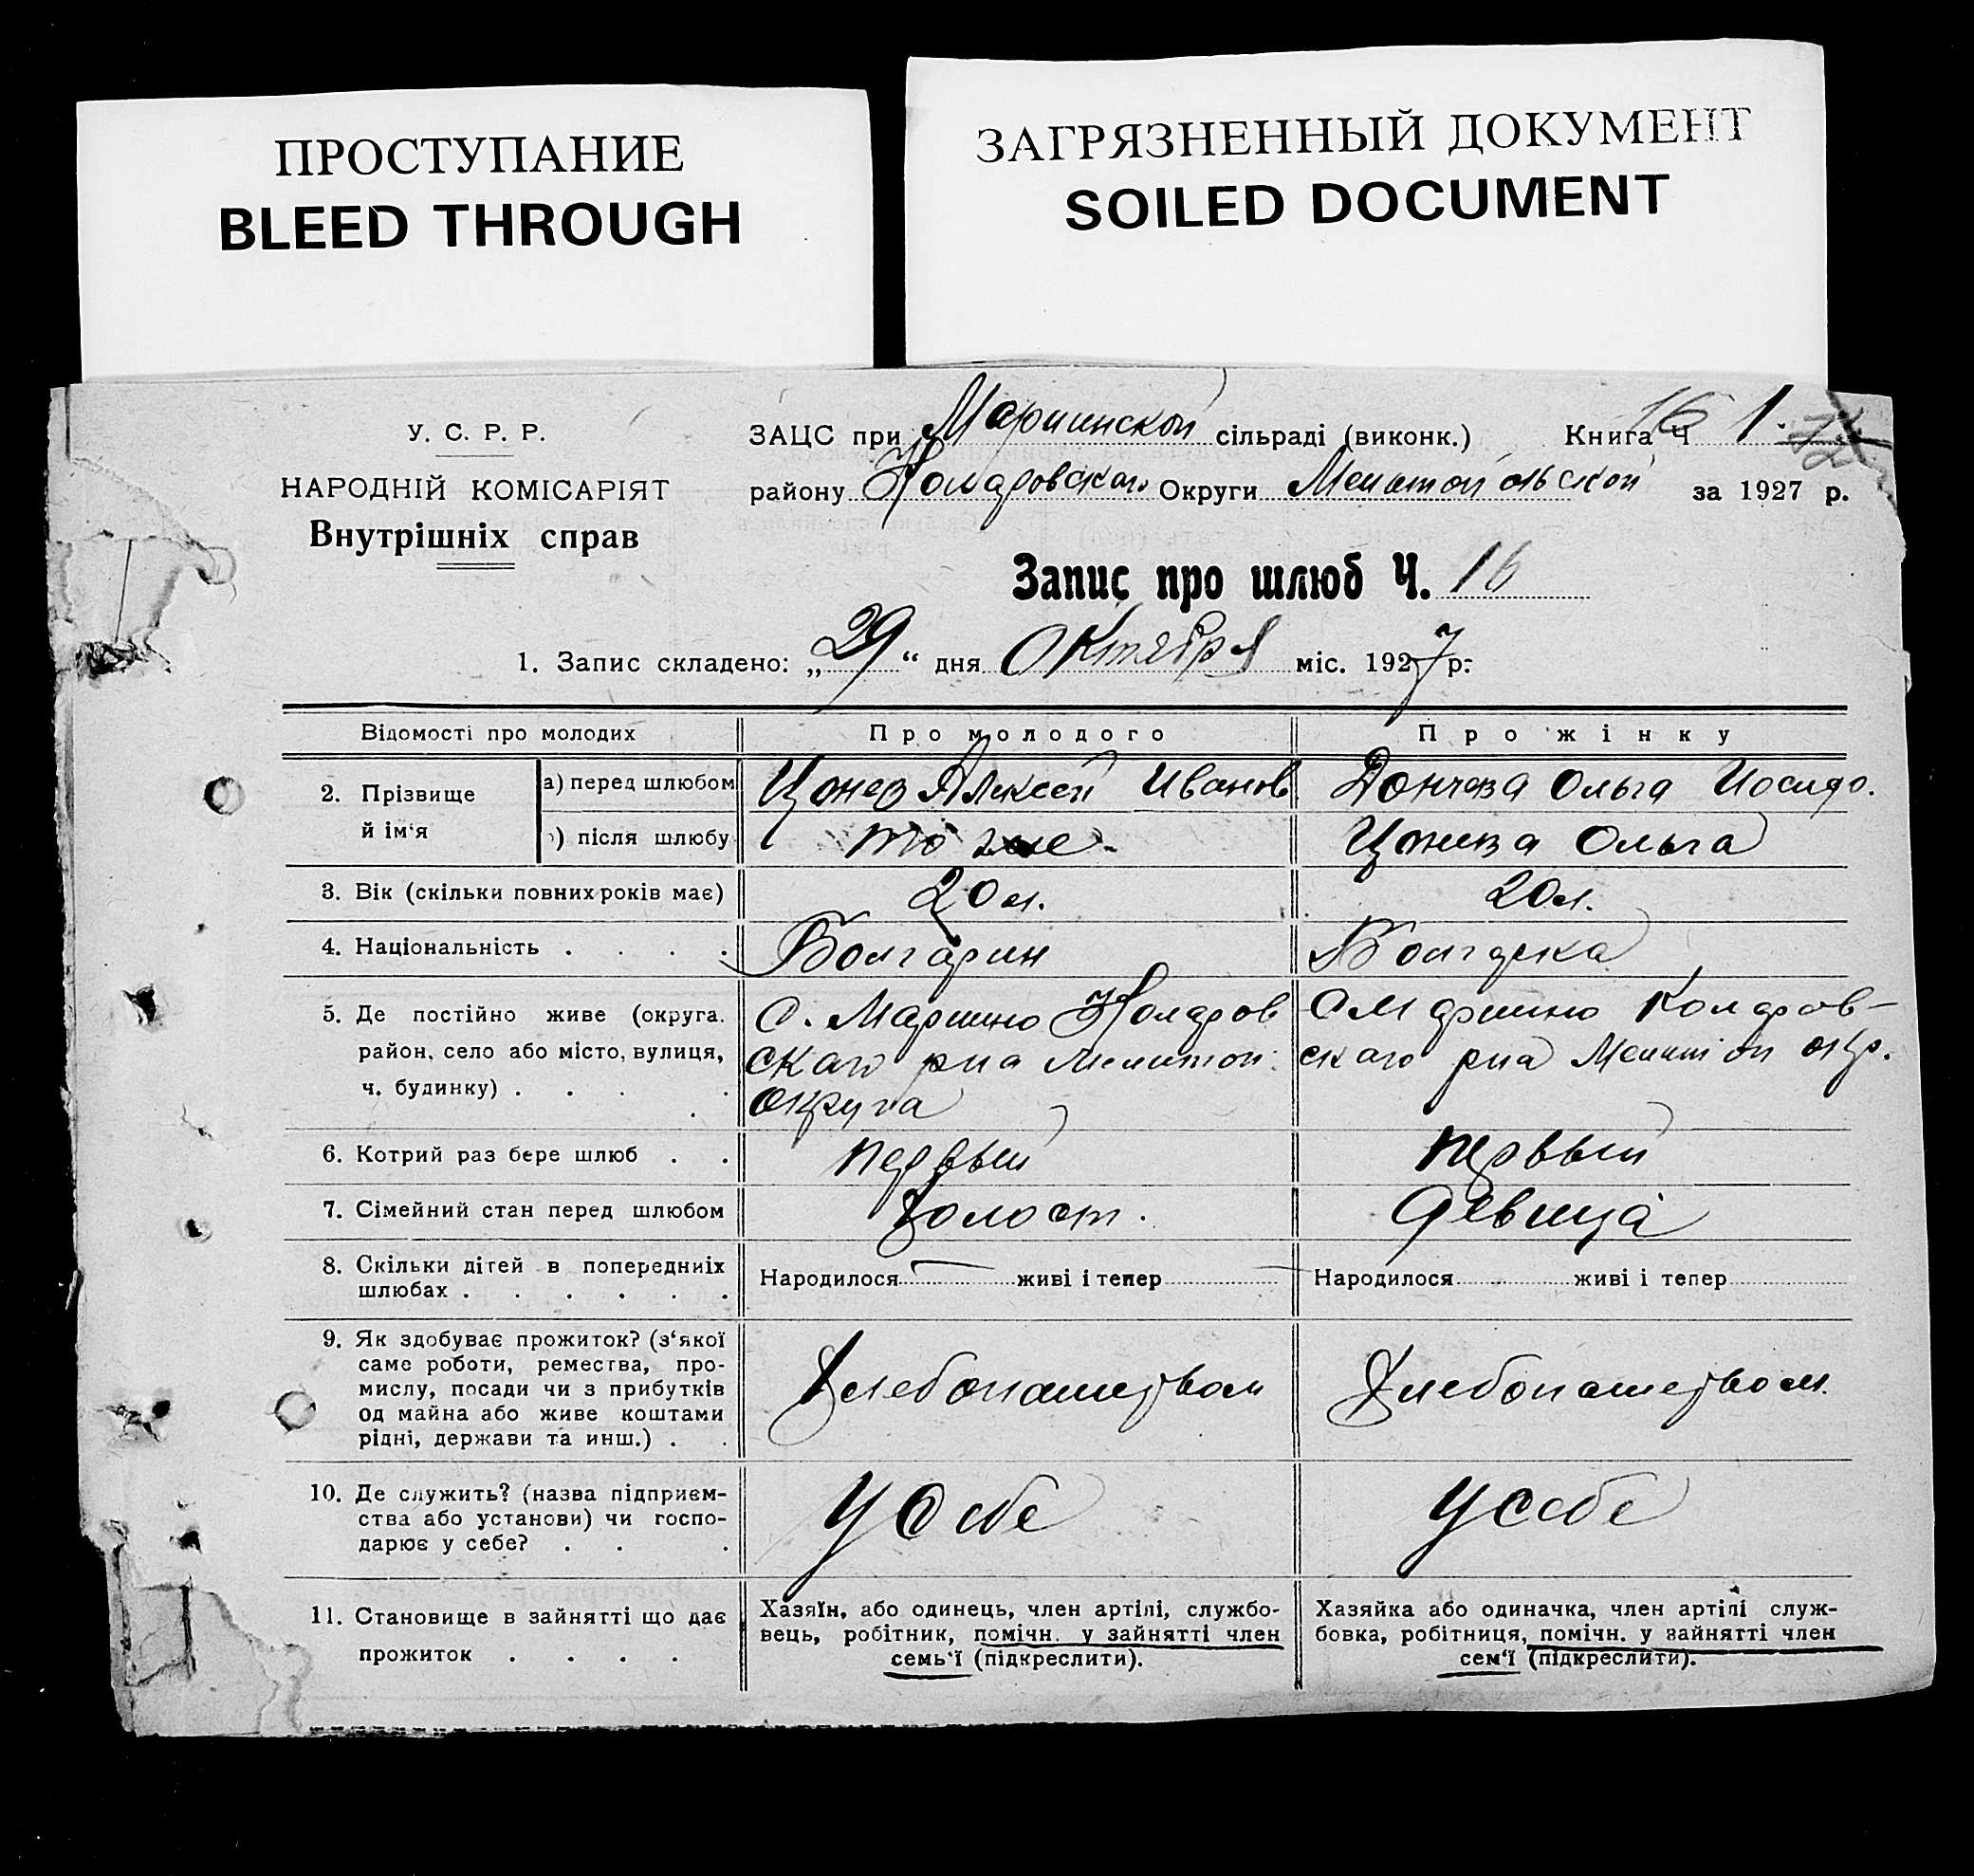 ПРОСТУПАНИЕ
BLEED THROUGH
ЗАГРЯЗНЕННЫЙ ДОКУМЕНТ
SOILED DOCUMENT
У. С. Р. Р.
НАРОДНІЙ КОМІСАРІЯТ
Внутрішніх справ
ЗАЦС при Мариинской сільраді (виконк.) Книга Ч 16 1.
району Коларовскаго Округи Мелитопольской за 1927 р.
Запис про шлюб Ч. 16
1. Запис складено: „29“ дня Октября міс. 1927 р.
Відомості про молодих
Про молодого
Про жінку
2. Прізвище й ім'я
а) перед шлюбом
Цонев Алексей Иванов
Дончева Ольга Иосифо.
) після шлюбу
то же
Цонева Ольга
3. Вік (скільки повних років має)
20 л.
20 л.
4. Національність . . . .
Болгарин
Болгарка
5. Де постійно живе (округа.
район, село або місто, вулиця,
ч. будинку) . . . .
С. Марино Коларов
скаго рна Мелитоп.
округа
С Марино Колоров-
скаго рна Мелитоп окр.
6. Котрий раз бере шлюб . .
первый
первый
7. Сімейний стан перед шлюбом
Холост.
девица
8. Скільки дітей в попередниіх
шлюбах . . . . . .
Народилося — живі і тепер
Народилося живі і тепер
9. Як здобуває прожиток? (з'якої
саме роботи, ремества, про-
мислу, посади чи з прибутків
од майна або живе коштами
рідні, держави та инш.) . .
Хлебопашеством
Хлебопашеством.
10. Де служить? (назва підприєм-
ства або установи) чи госпо-
дарює у себе? . . .
У себе
У себе
11. Становище в зайнятті що дає
прожиток . . . .
Хазяїн, або одинець, член артілі, службо-
вець, робітник, помічн. у зайнятті член
семь'ї (підкреслити).
Хазяйка або одиначка, член артілі служ-
бовка, робітниця, помічн. у зайнятті член
сем'ї (підкреслити).